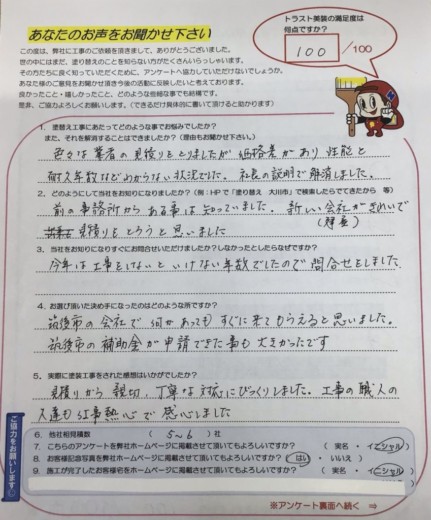 あなたのお声をお聞かせ下さい
この度は、弊社に工事のご依頼を頂きまして、ありがとうございました。
世の中にはまだ、塗り替えのことを知らない方がたくさんいらっしゃいます。
その方たちに良く知っていただくために、アンケートへ協力していただけないでしょうか。
あなた様のご意見をお聞かせ頂き今後の活動に反映したいと考えております。
良かったこと・嬉しかったこと、どのような些細な事でも結構です。
是非、ご協力よろしくお願いします。(できるだけ具体的に書いて頂けると助かります)
トラスト美装の満足度は
何点ですか?
100 /100
1. 塗替え工事にあたってどのような事でお悩みでしたか?
また、それを解消することはできましたか?(理由もお聞かせ下さい。)
色々な業者の見積りをとりましたが価格差があり性能と
耐久年数などもわからない状況でした。社長の説明で解消しました。
2. どのようにして当社をお知りになりましたか?(例:HPで「塗り替え 大川市」で検索したらでてきたから 等)
前の事務所からある事は知っていました。新しい会社がきれいで
見積りをとろうと思いました
3. 当社をお知りになりすぐにお問合せいただけましたか?しなかったとしたらなぜですか?
今年は工事をしないといけない年数でしたので問合せをしました。
4. お選び頂いた決め手になったのはどのような所ですか?
筑後市の会社で何かあってもすぐに来てもらえると思いました。
筑後市の補助金が申請できた事も大きかったです
5. 実際に塗装工事をされた感想はいかがでしたか?
見積りから親切、丁寧な対応にびっくりしました。工事の職人の
人達も仕事熱心で感心しました
ご協力をお願いします☺
6. 他社相見積数 ( 5~6 )社
7. こちらのアンケートを弊社ホームページに掲載させて頂いてもよろしいですか? ( 実名 ・ イニシャル )
8. お客様記念写真を弊社ホームページに掲載させて頂いてもよろしいですか? ( はい ・ いいえ )
9. 施工が完了したお客様宅をホームページに掲載させて頂いてもよろしいですか? ( 実名 ・ イニシャル )
※アンケート裏面へ続く ⇒